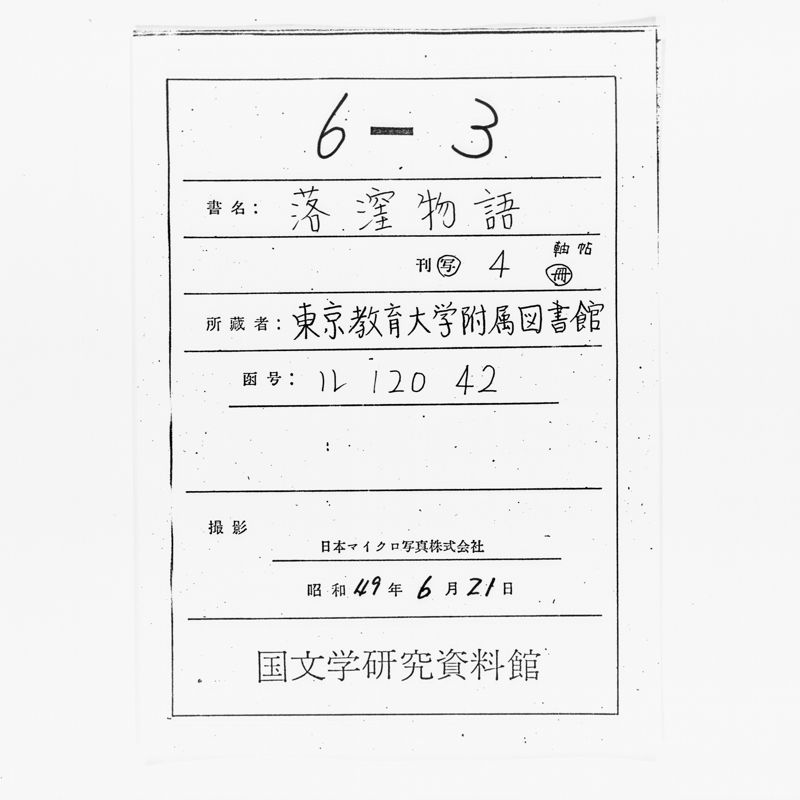 6 ー 3
書名： 落窪物語
軸 帖
刊 写 4 冊
所蔵者： 東京教育大学附属図書館
函号： ル 120 42
撮影
日本マイクロ写真株式会社
昭和49年6月21日
国文学研究資料館